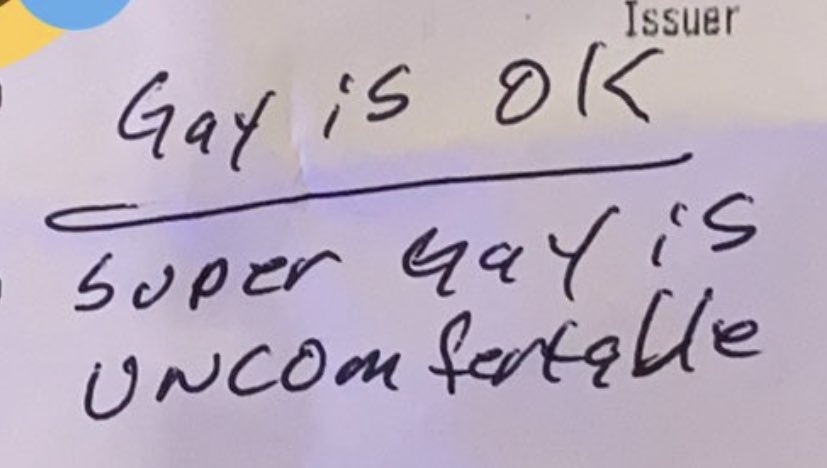 Issuer
Gay is OK
super gay is
UNCOMfertable